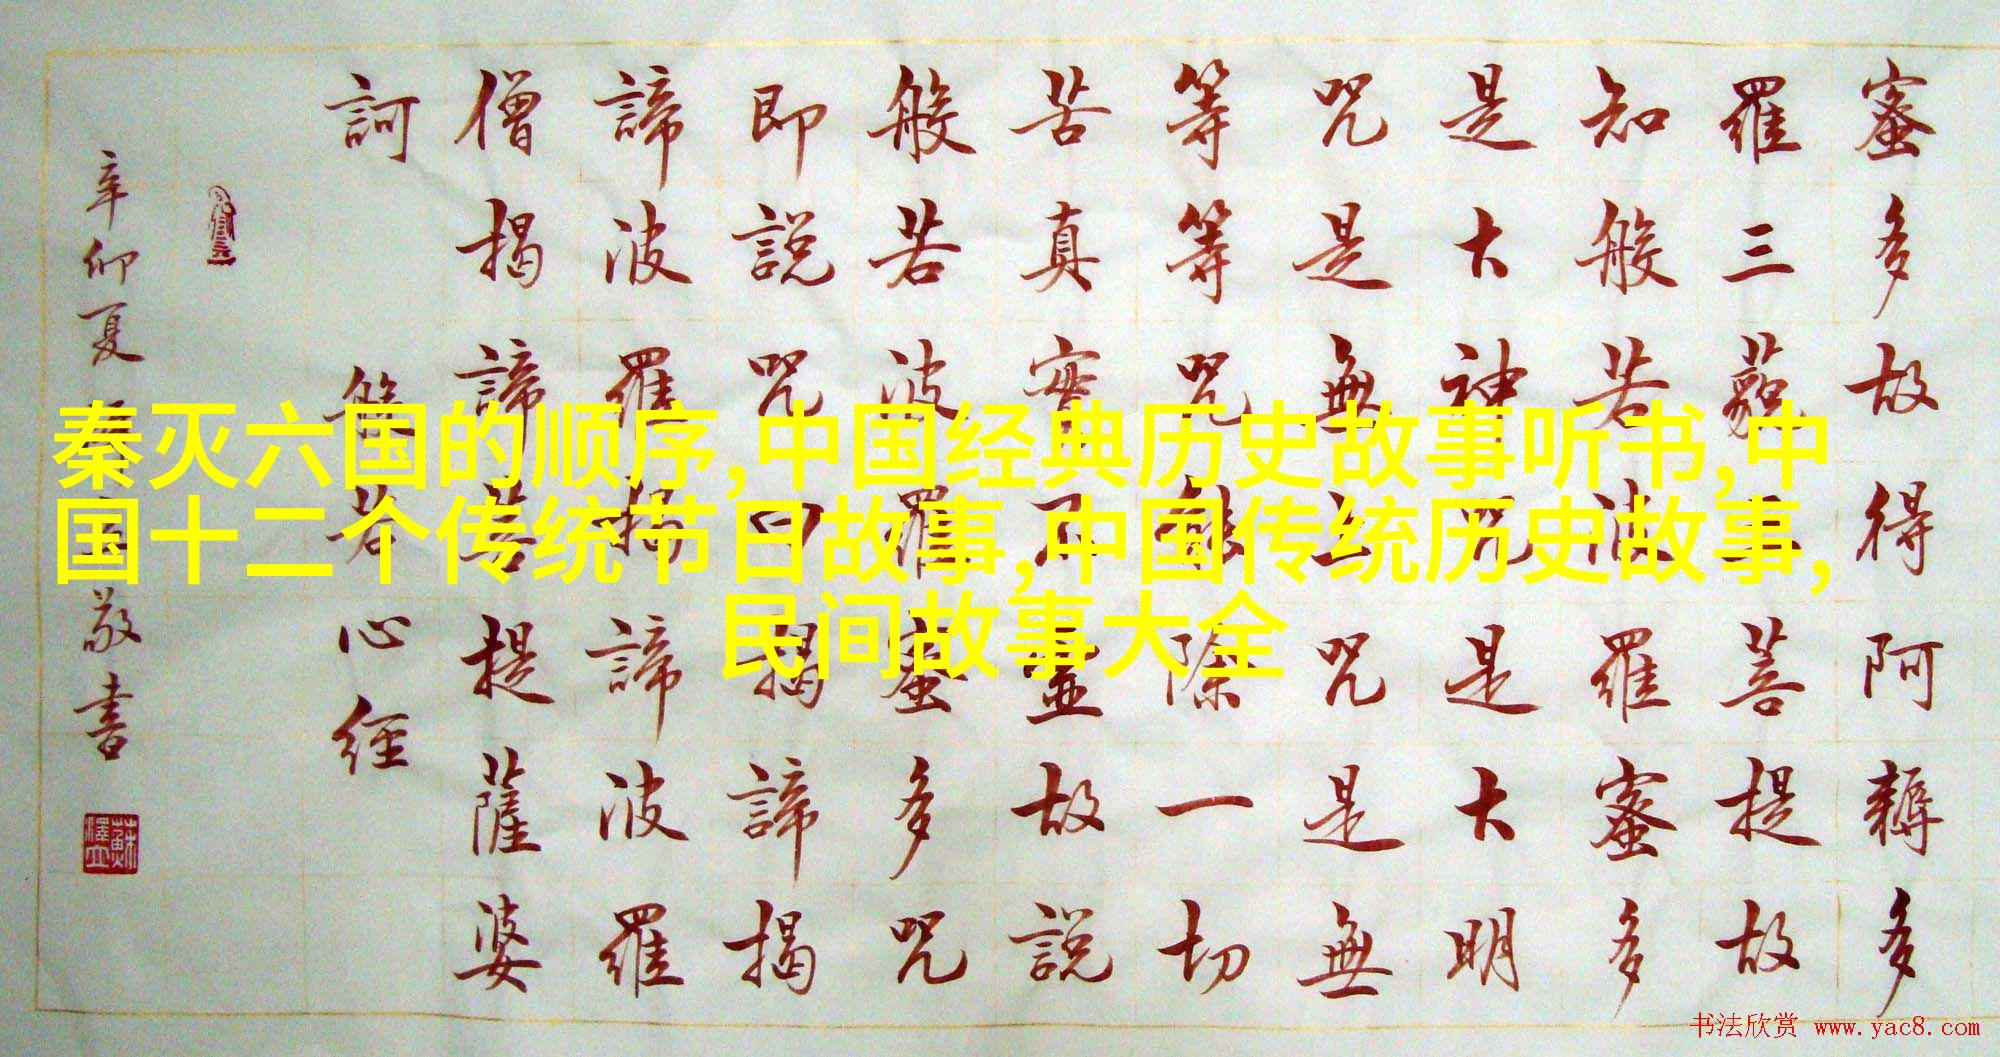 蜜多故得阿耨多
羅三藐三菩提故
知般若波羅蜜多
是大神咒是大明
咒是無上咒是無
等等咒能除一切
苦真實不虛故說
般若波羅蜜多咒
即說咒曰揭諦揭
諦波羅揭諦波羅
僧揭諦菩提薩婆
訶 般若心經
辛卯夏 敬書
秦灭六国的顺序,中国经典历史故事听书,中
国十二个传统节日故事,中国传统历史故事,
民间故事大全
书法欣赏 www.yac8.com